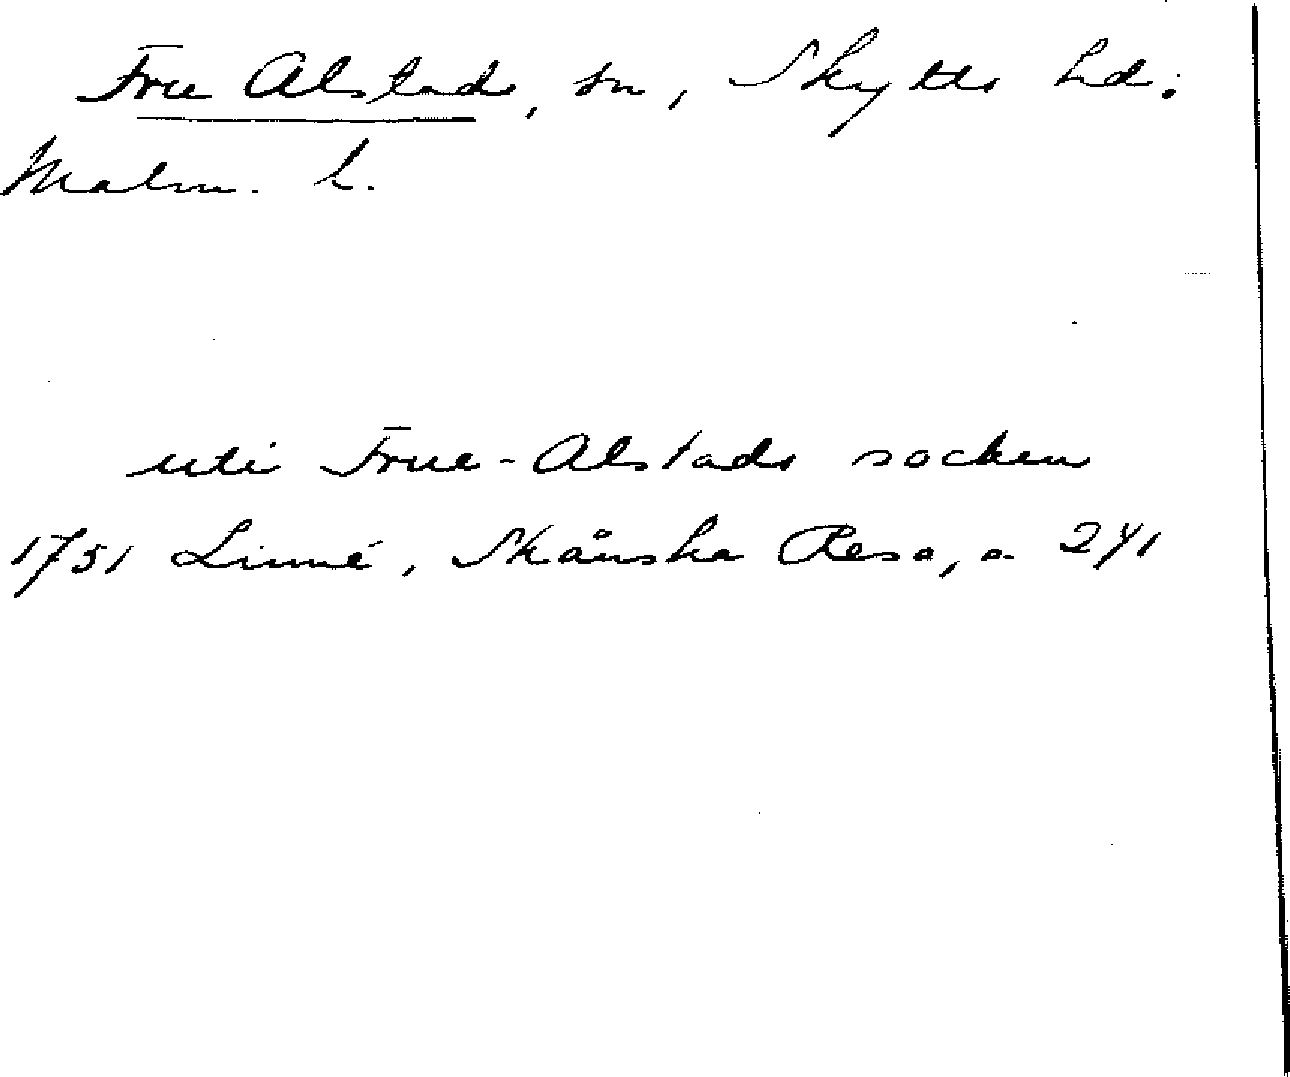 Fru Alstads, sn, Skytts hd.
Malm. l.
uti Frue-Alstads socken
1751 Linné, Skånska Resa, s. 241